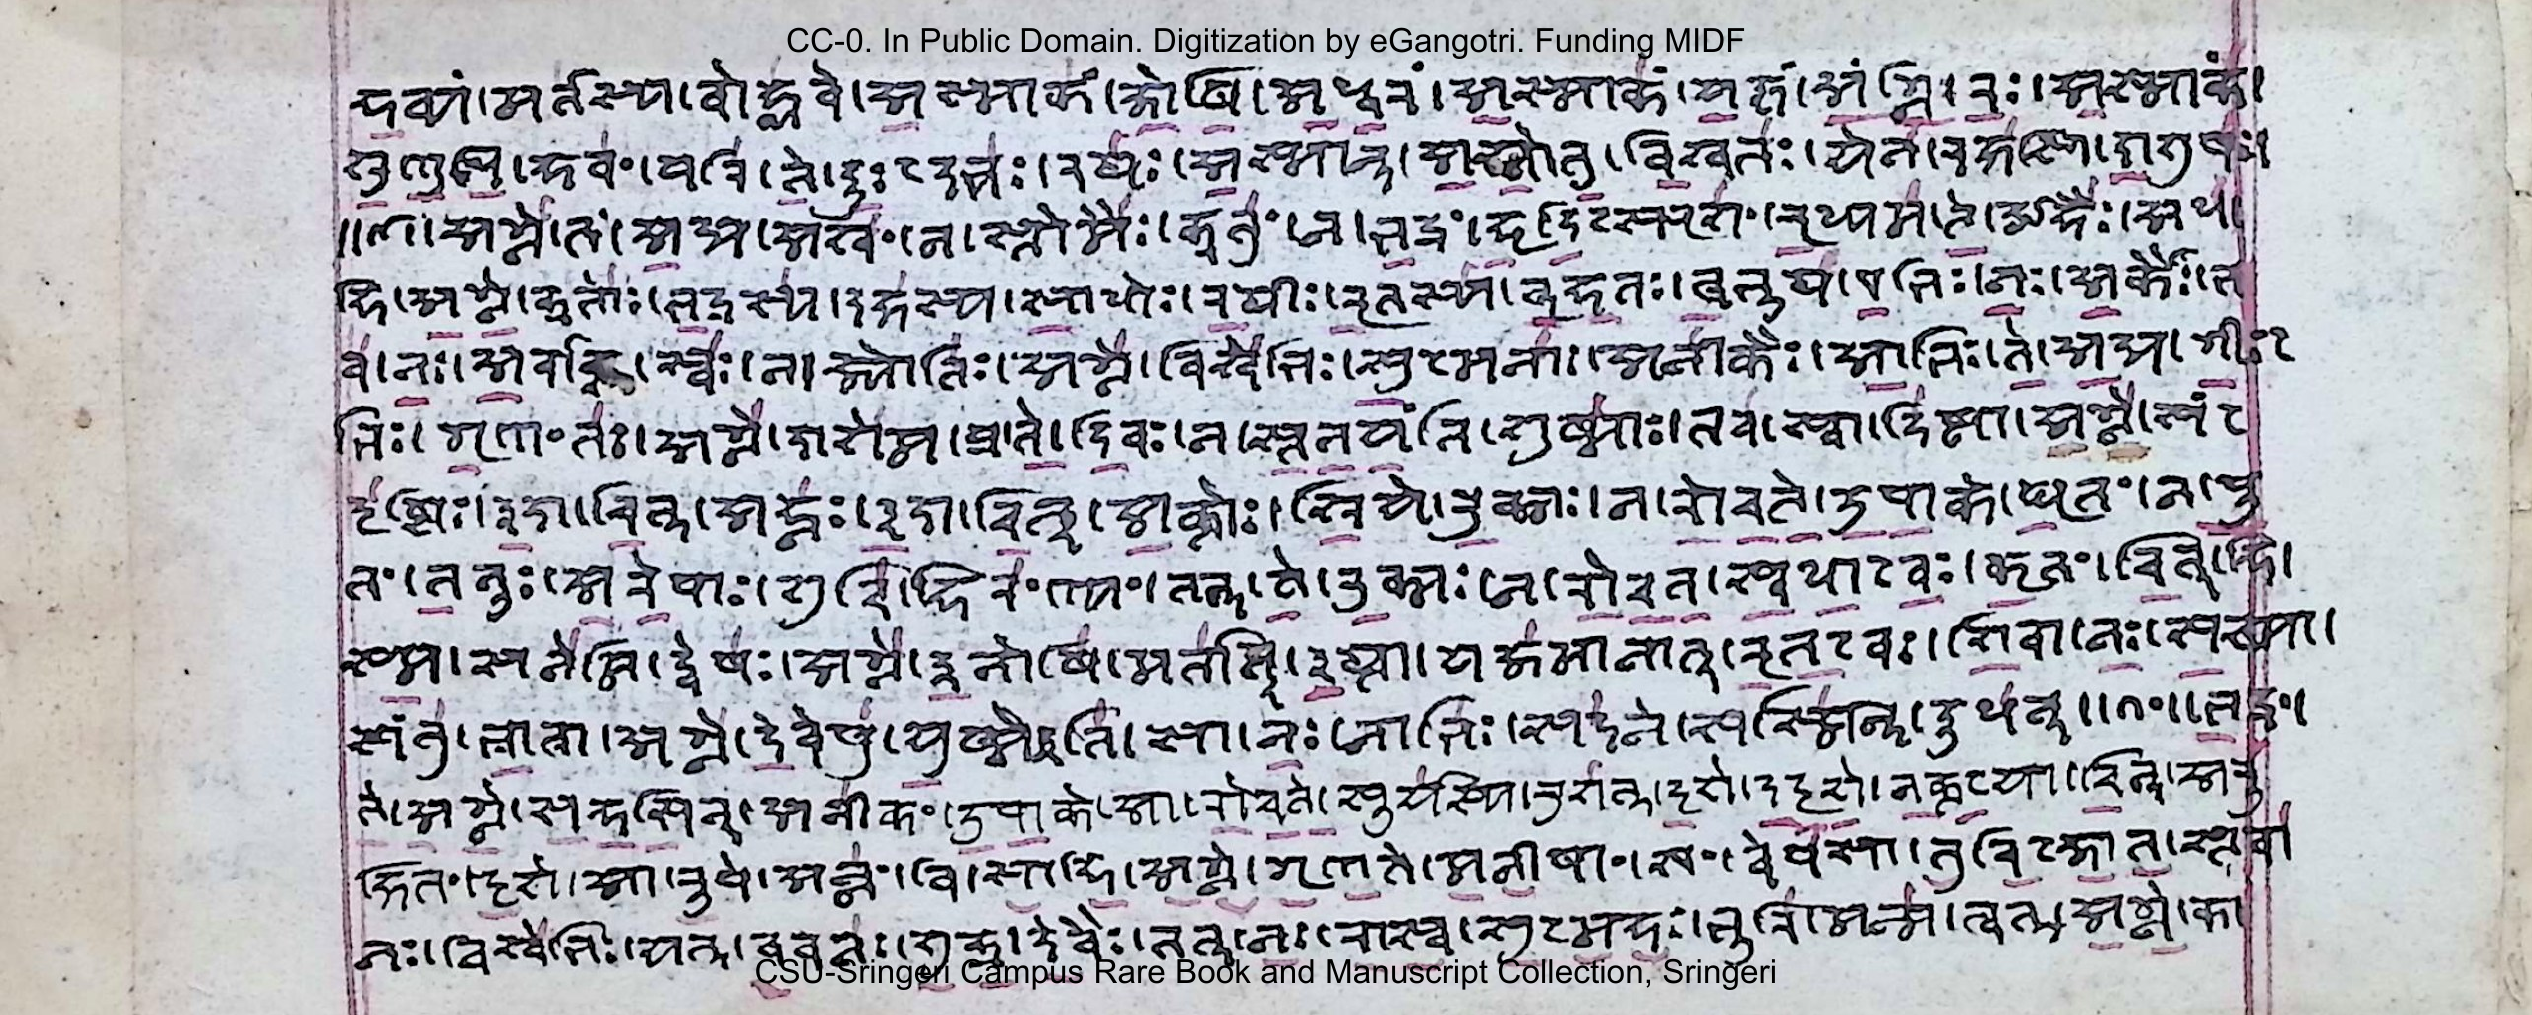 CC-0. In Public Domain. Digitization by eGangotri. Funding MIDF
हव्यं।मर्तस्य।वोह्ळवे।अस्माकं।जोषि।अध्वरं।अस्माकं।यज्ञं।अंगिरः।अस्माकं।
शृणुधि।हवं।परि।ते।दुःऽदभः।रथः।अस्मान्।अश्नोतु।विश्वतः।येन।रक्षसि।दाशुषः।
॥९॥अग्ने।तं।अद्य।अश्वं।न।स्तोमैः।क्रतुं।न।भद्रं।हृदिऽस्पृशं।ऋध्याम।ते।ओहैः।अध।
हि।अग्ने।क्रतोः।भद्रस्य।दक्षस्य।साधोः।रथीः।ऋतस्य।बृहतः।बभूथ।एभिः।नः।अर्कैः।भ
व।नः।अर्वाङ्।स्वः।न।ज्योतिः।अग्ने।विश्वेभिः।सुऽमनाः।अनीकैः।आभिः।ते।अद्य।गीःऽ
भिः।गृणंतः।अग्ने।दाशेम।प्र।ते।दिवः।न।स्तनयंति।शुष्माः।तव।स्वादिष्ठा।अग्ने।संऽ
दृष्टिः।इदा।चित्।अह्नः।इदा।चित्।अक्तोः।श्रिये।रुक्मः।न।रोचते।उपाके।घृतं।न।पू
तं।तनूः।अरेपाः।शुचि।हिरण्यं।तत्।ते।रुक्मः।न।रोचत।स्वधाऽवः।कृतं।चित्।हि।
स्म।सनेमि।द्वेषः।अग्ने।इनोषि।मर्तात्।इत्था।यजमानात्।ऋतऽवः।शिवा।नः।सख्या।
संतु।भ्रात्रा।अग्ने।देवेषु।युष्मे इति।सा।नः।नाभिः।सदने।सस्मिन्।ऊधन्॥१०॥भद्रं।
ते।अग्ने।सहसिन्।अनीकं।उपाके।आ।रोचते।सूर्यस्य।रुशत्।दृशे।ददृशे।नक्तऽया।चित्।अरू
क्षितं।दृशे।आ।रूपे।अन्नं।वि।साहि।अग्ने।गृणते।मनीषां।खं।वेपसा।तुविऽजात।स्तवा
नः।विश्वेभिः।यत्।ववनः।शुक्र।देवैः।तत्।नः।रास्व।सुऽमहः।भूरि।मन्म।त्वत्।अग्ने।का
CSU-Sringeri Campus Rare Book and Manuscript Collection, Sringeri